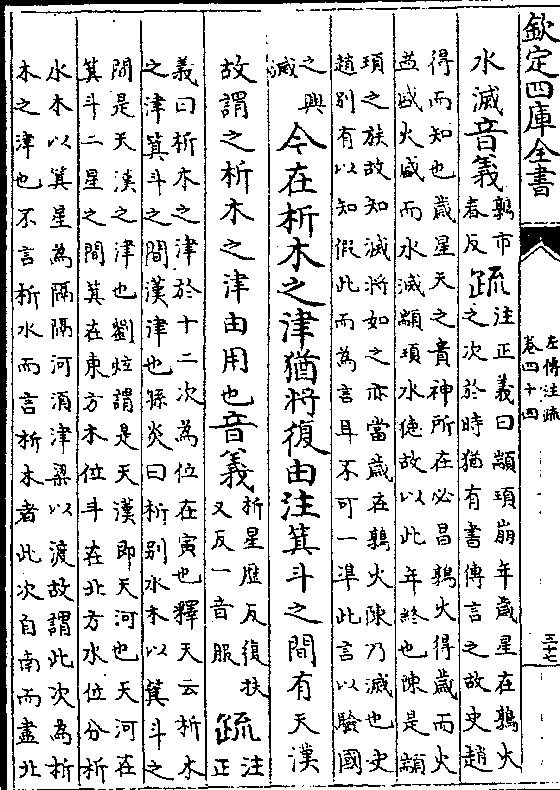 欽定四庫全書
左傳注疏
卷四十四
三十七
水滅音義
鶉市
春反
疏
注正義曰顓頊崩年歲星在鶉火
之次於時猶有書傳言之故史趙
得而知也歲星天之貴神所在必昌鶉火得歲而火
益盛火盛而水滅顓頊水徳故以此年終也陳是顓
頊之族故知滅將如之亦當歲在鶉火陳乃滅也史
趙別有以知假此而為言耳不可一準此言以驗國
之興
滅
今在析木之津猶將復由注箕斗之間有天漢
故謂之析木之津由用也音義
析星歷反復扶
又反一音服
疏
注
正
義曰析木之津於十二次為位在寅也釋天云析木
之津箕斗之間漢津也孫炎曰析別水木以箕斗之
間是天漢之津也劉炫謂是天漢即天河也天河在
箕斗二星之間箕在東方木位斗在北方水位分析
水木以箕星為隔隔河須津梁以渡故謂此次為析
木之津也不言析水而言析木者此次自南而盡北